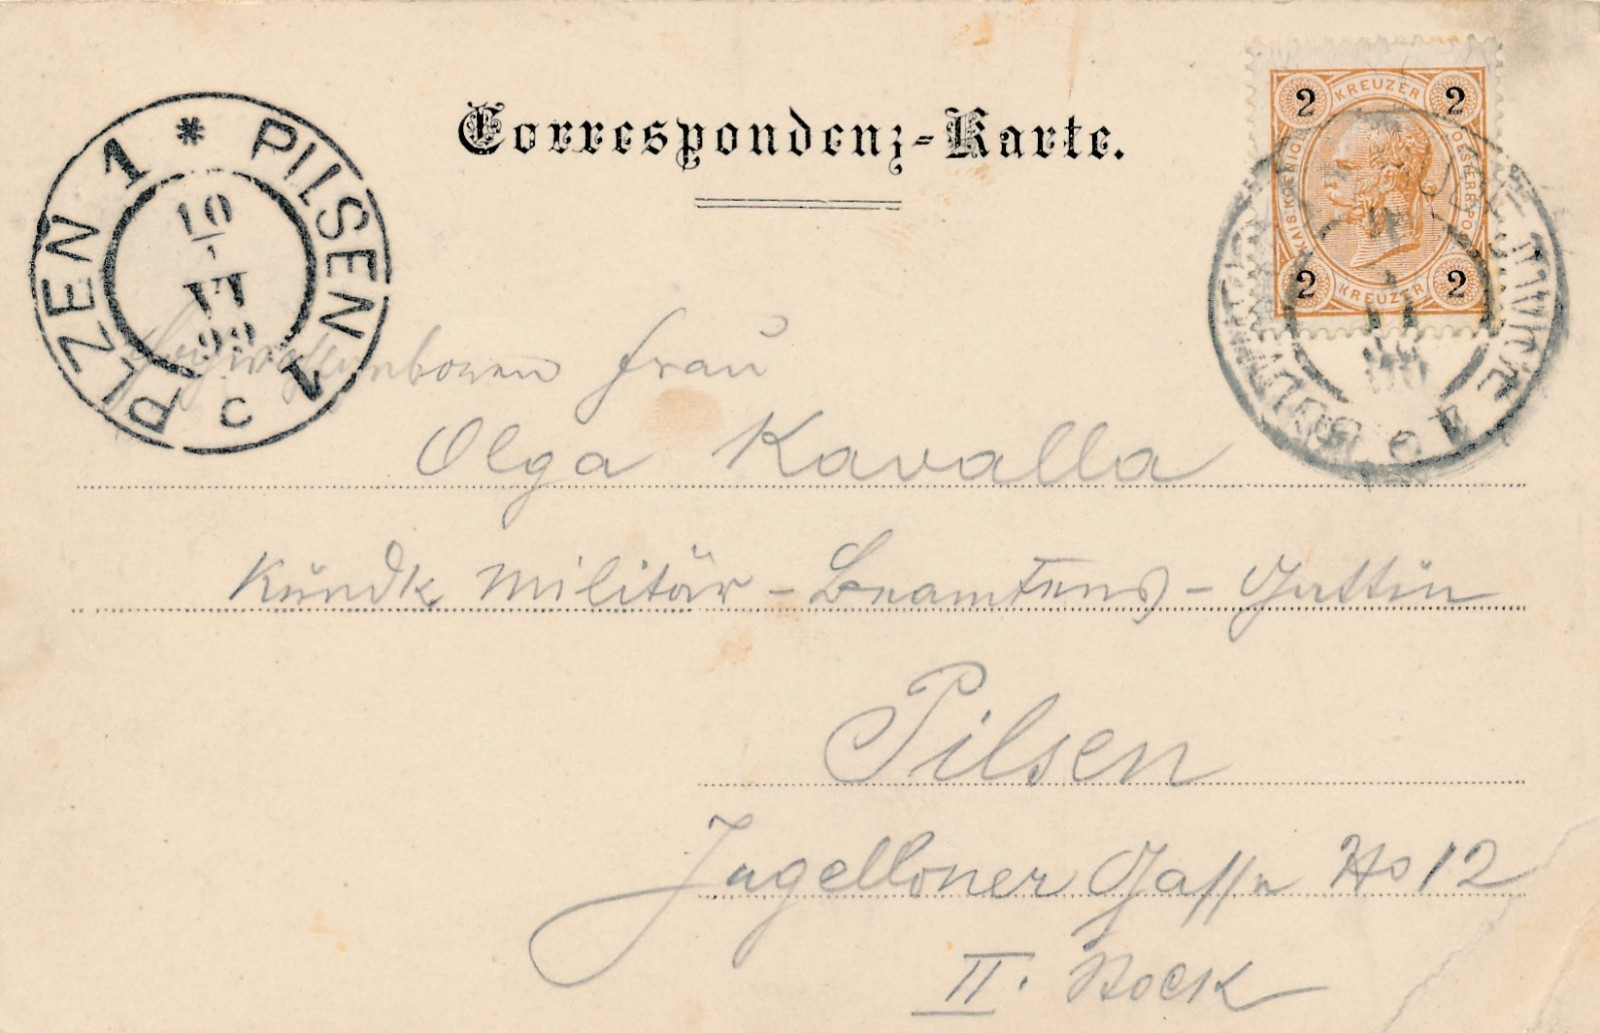 Correspondenz-Karte.
PLZEN 1 * PILSEN 1
10
VI
99
C
2 KREUZER 2
KAIS. KOENIGL. OESTERR. POST
2 KREUZER 2
Hochwohlgeborenen Frau
Olga Kavalla
Militär-Beamtens-Gattin
Pilsen
Jagelloner Gasse No 12
II. Stock